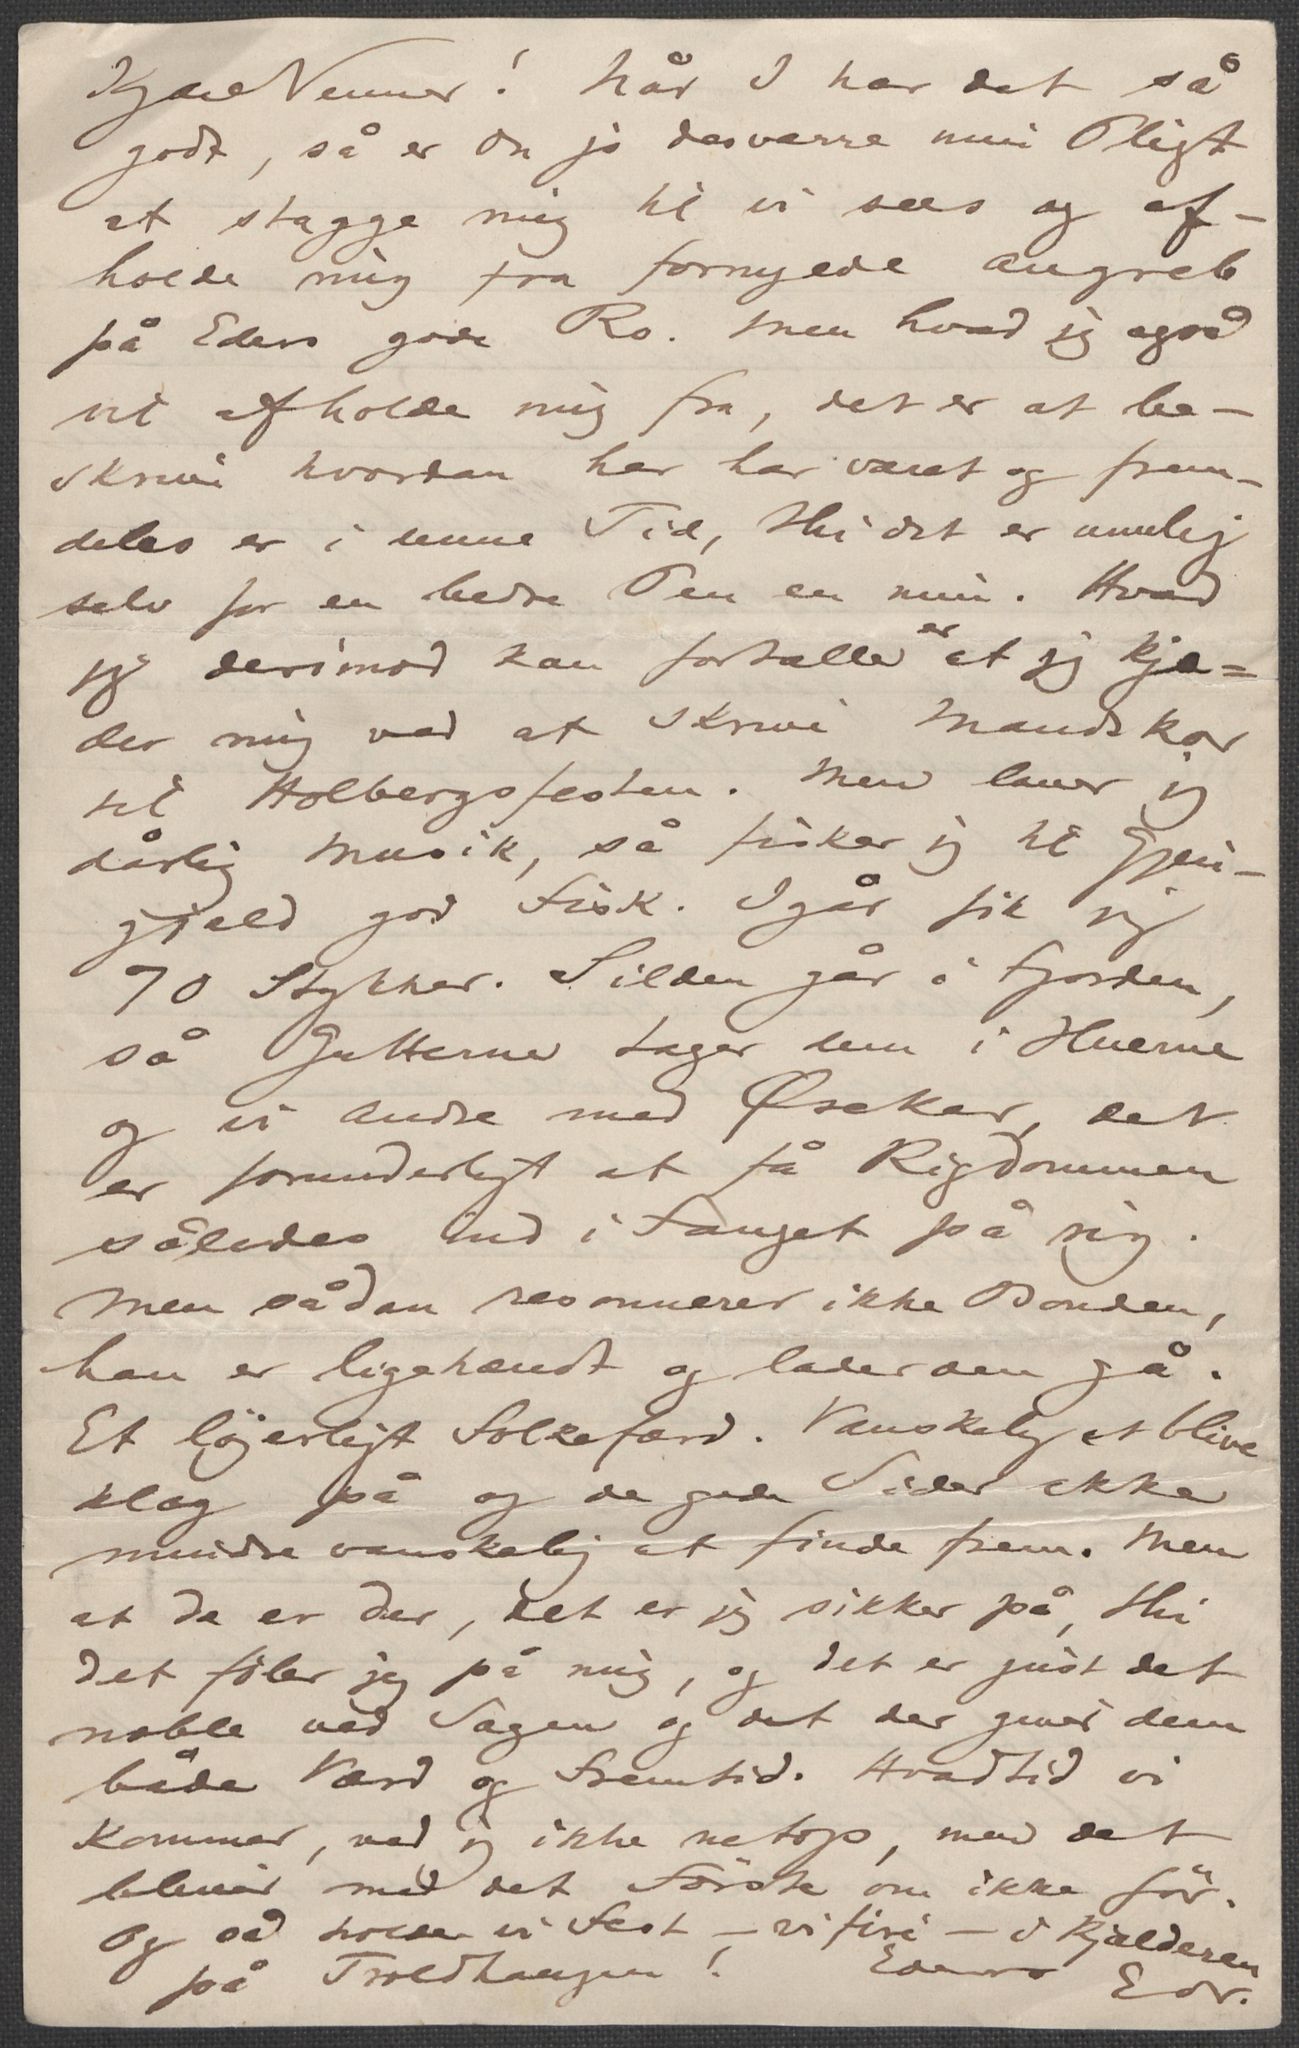 Kjære Venner! Når I har det så
godt, så er den jo desværre min Pligt
at stagge mig til vi sees og af-
holde mig fra fornyede Angreb
på Eders gode Ro. Men hvad jeg også
vil afholde mig fra, det er at be-
skrive hvordan her har været og frem-
deles er i denne Tid, thi det er umulig
selv for en bedre Pen en min. Hvad
jeg derimod kan fortælle er at jeg kje=
der mig ved at skrive Mandskor
til Holbergsfesten. Men laver jeg
dårlig Musik, så fisker jeg til Gjen-
gjæld god Fisk. Igår fik jeg
70 Stykker. Silden går i Fjorden,
så Gutterne tager dem i Huerne
og vi andre med Øsekar, det
er forunderligt at få Rigdommen
således ind i Fanget på sig.
Men sådan resonnerer ikke Bonden,
han er ligehændt og lader den gå.
Et löjerligt Folkefærd. Vanskelig at blive
klog på og de gode Sider ikke
mindre vanskelig at finde frem. Men
at de er der, det er jeg sikker på, thi
det föler jeg på mig, og det er just det
noble ved Sagen og det der giver dem
både Værd og Fremtid. Hvadtid vi
kommer, ved jeg ikke netop, men det
bliver med det Förste om ikke för.
Og så holder vi Fest – vi fire – i Kjælderen
på Troldhaugen! Eders Edv.